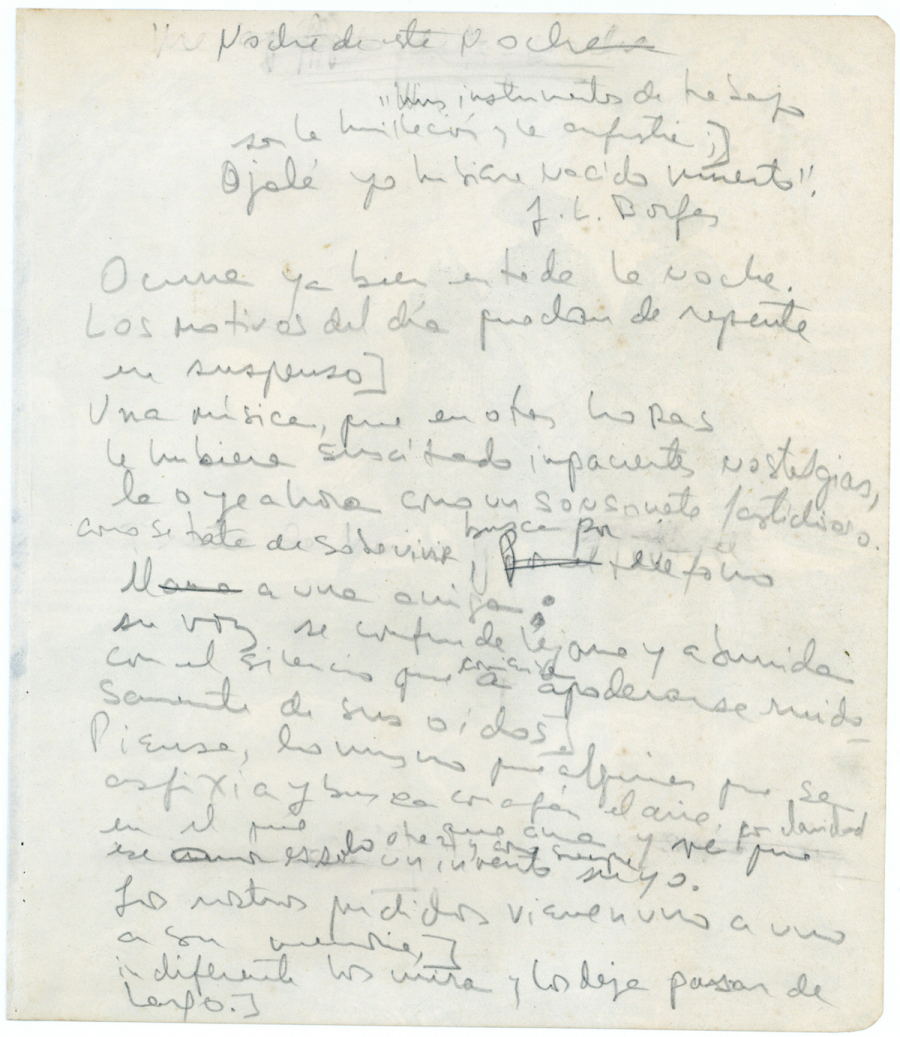 Nadie de este Noche
"Mis instrumentos de trabajo
son la humillación y la angustia;]
Ojalá yo hubiera nacido muerto".
J. L. Borges
Ocurre ya bien entrada la noche.
Los motivos del día quedan de repente
en suspenso]
Una música, que en otras horas
le hubiera suscitado impacientes nostalgias,
la oye ahora como un sonsonete fastidioso.
como se trata de sobrevivir, busca por
Por el teléfono
Llama a una amiga;
su voz se confunde lejana y aburrida
con el silencio que comienza a apoderarse ruido-
samente de sus oídos]
Piensa, lo mismo que alguien que se
asfixia y busca con afán el aire,
en el que ama y ve con claridad que
ese amor es solo otra vez y como siempre un invento suyo.
Los rostros perdidos vienen uno a uno
a su memoria,]
indiferente los mira y los deja pasar de
largo.]